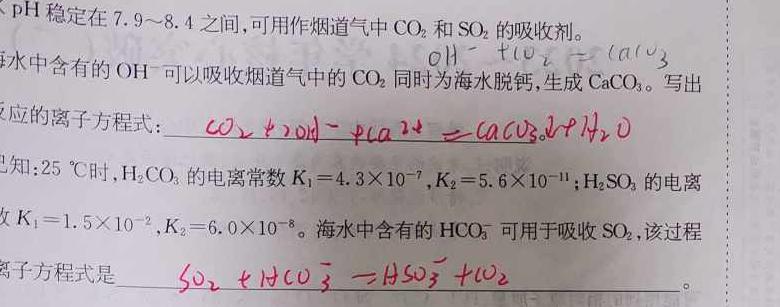 pH 稳定在 7.9～8.4 之间,可用作烟道气中 CO₂ 和 SO₂ 的吸收剂。
OH⁻ + CO₂ = CaCO₃
海水中含有的 OH⁻ 可以吸收烟道气中的 CO₂ 同时为海水脱钙,生成 CaCO₃。写出
反应的离子方程式: CO₂ + 2OH⁻ + Ca²⁺ = CaCO₃↓ + H₂O
已知:25 ℃时,H₂CO₃ 的电离常数 K₁=4.3×10⁻⁷,K₂=5.6×10⁻¹¹;H₂SO₃ 的电离
数 K₁=1.5×10⁻²,K₂=6.0×10⁻⁸。海水中含有的 HCO₃⁻ 可用于吸收 SO₂,该过程
离子方程式是 SO₂ + HCO₃⁻ = HSO₃⁻ + CO₂ 。